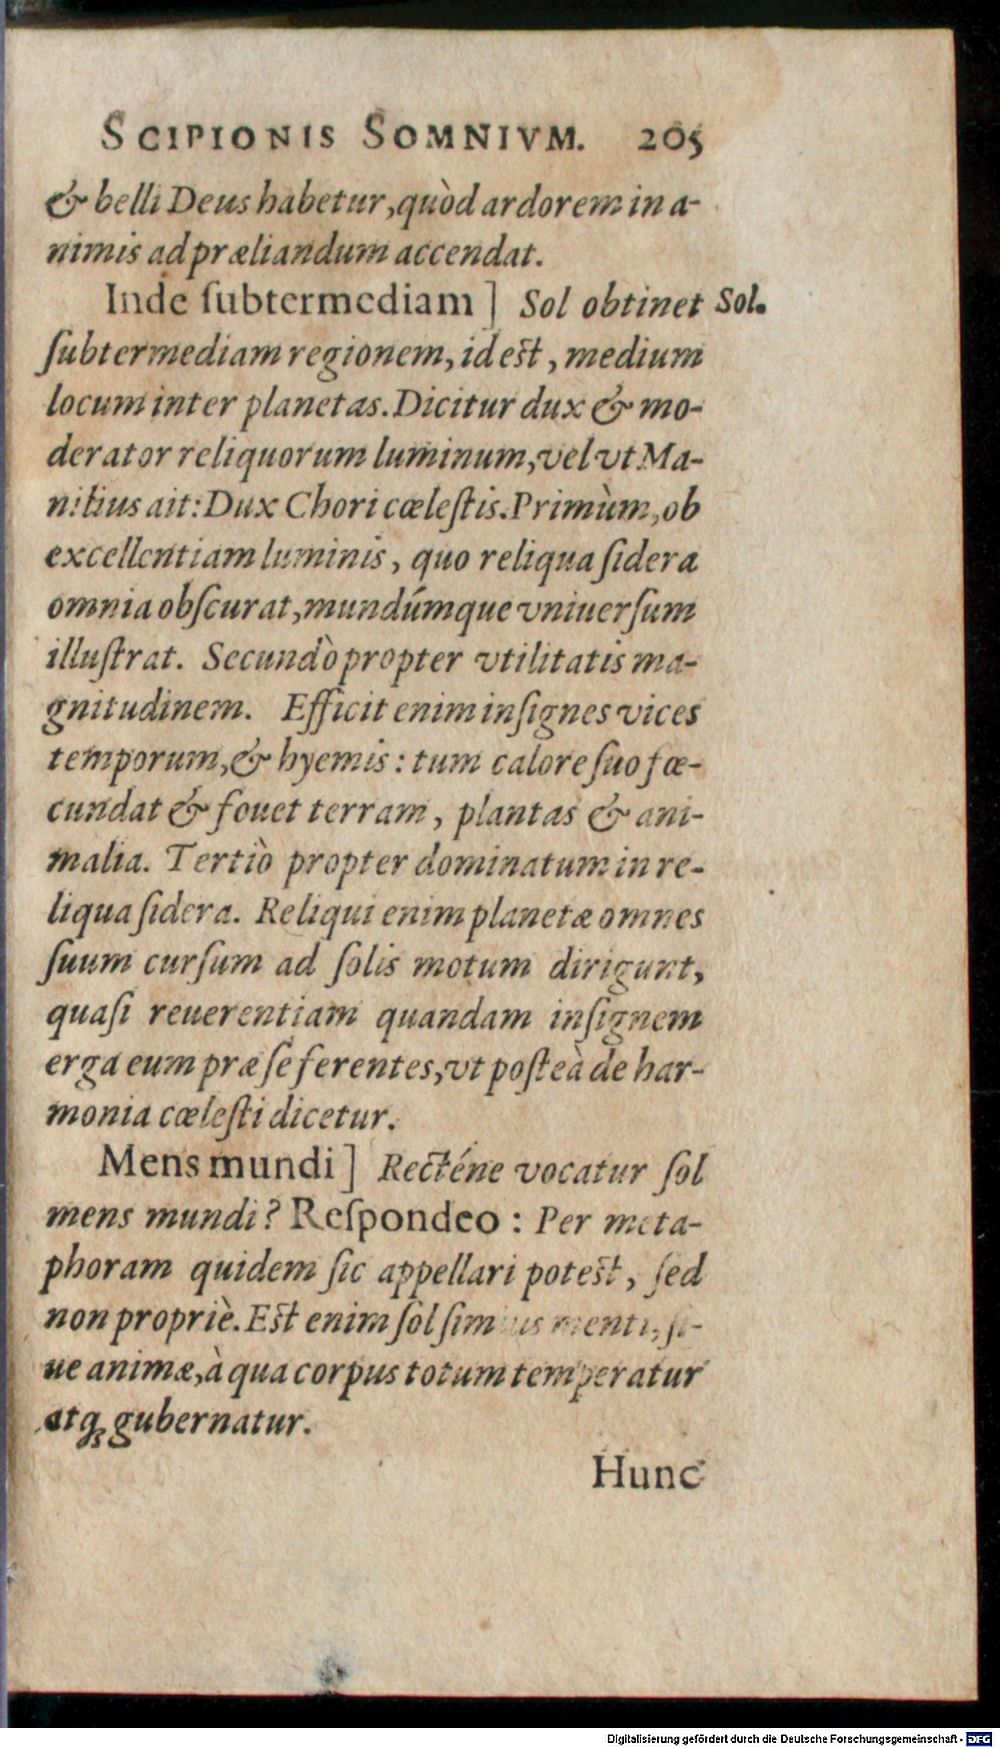 SCIPIONIS SOMNIVM. 205
& belli Deus habetur, quòd ardorem in a-
nimis ad præliandum accendat.
Inde ſubtermediam] Sol obtinet Sol.
ſubtermediam regionem, id eſt, medium
locum inter planetas. Dicitur dux & mo-
derator reliquorum luminum, vel vt Ma-
nilius ait: Dux Chori cœleſtis. Primùm, ob
excellentiam luminis, quo reliqua ſidera
omnia obſcurat, mundúmque vniuerſum
illuſtrat. Secundò propter vtilitatis ma-
gnitudinem. Efficit enim inſignes vices
temporum, & hyemis: tum calore ſuo fœ-
cundat & fouet terram, plantas & ani-
malia. Tertiò propter dominatum in re-
liqua ſidera. Reliqui enim planetæ omnes
ſuum curſum ad ſolis motum dirigunt,
quaſi reuerentiam quandam inſignem
erga eum præ ſe ferentes, vt poſteà de har-
monia cœleſti dicetur.
Mens mundi] Recténe vocatur ſol
mens mundi? Reſpondeo: Per meta-
phoram quidem ſic appellari poteſt, ſed
non propriè. Eſt enim ſol ſimilis menti, ſi-
ue animæ, à qua corpus totum temperatur
atq; gubernatur.
Hunc
Digitalisierung gefördert durch die Deutsche Forschungsgemeinschaft - DFG